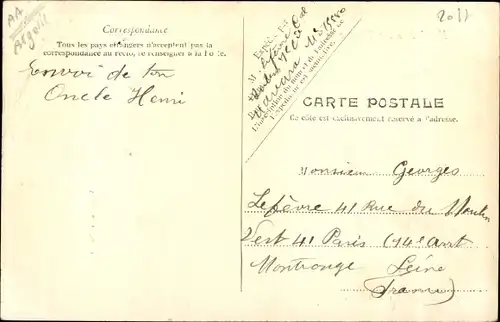 AA
Argelè
Correspondance
Tous les pays étrangers n'acceptent pas la
correspondance au recto, se renseigner à la Poste.
Envoi de ton
Oncle Henri
2011
CARTE POSTALE
Ce côté est exclusivement réservé à l'adresse.
Monsieur Georges
Lefèvre 41 Rue du Moulin
Vert 41 Paris (14e arrt
Montrouge Seine
(France)